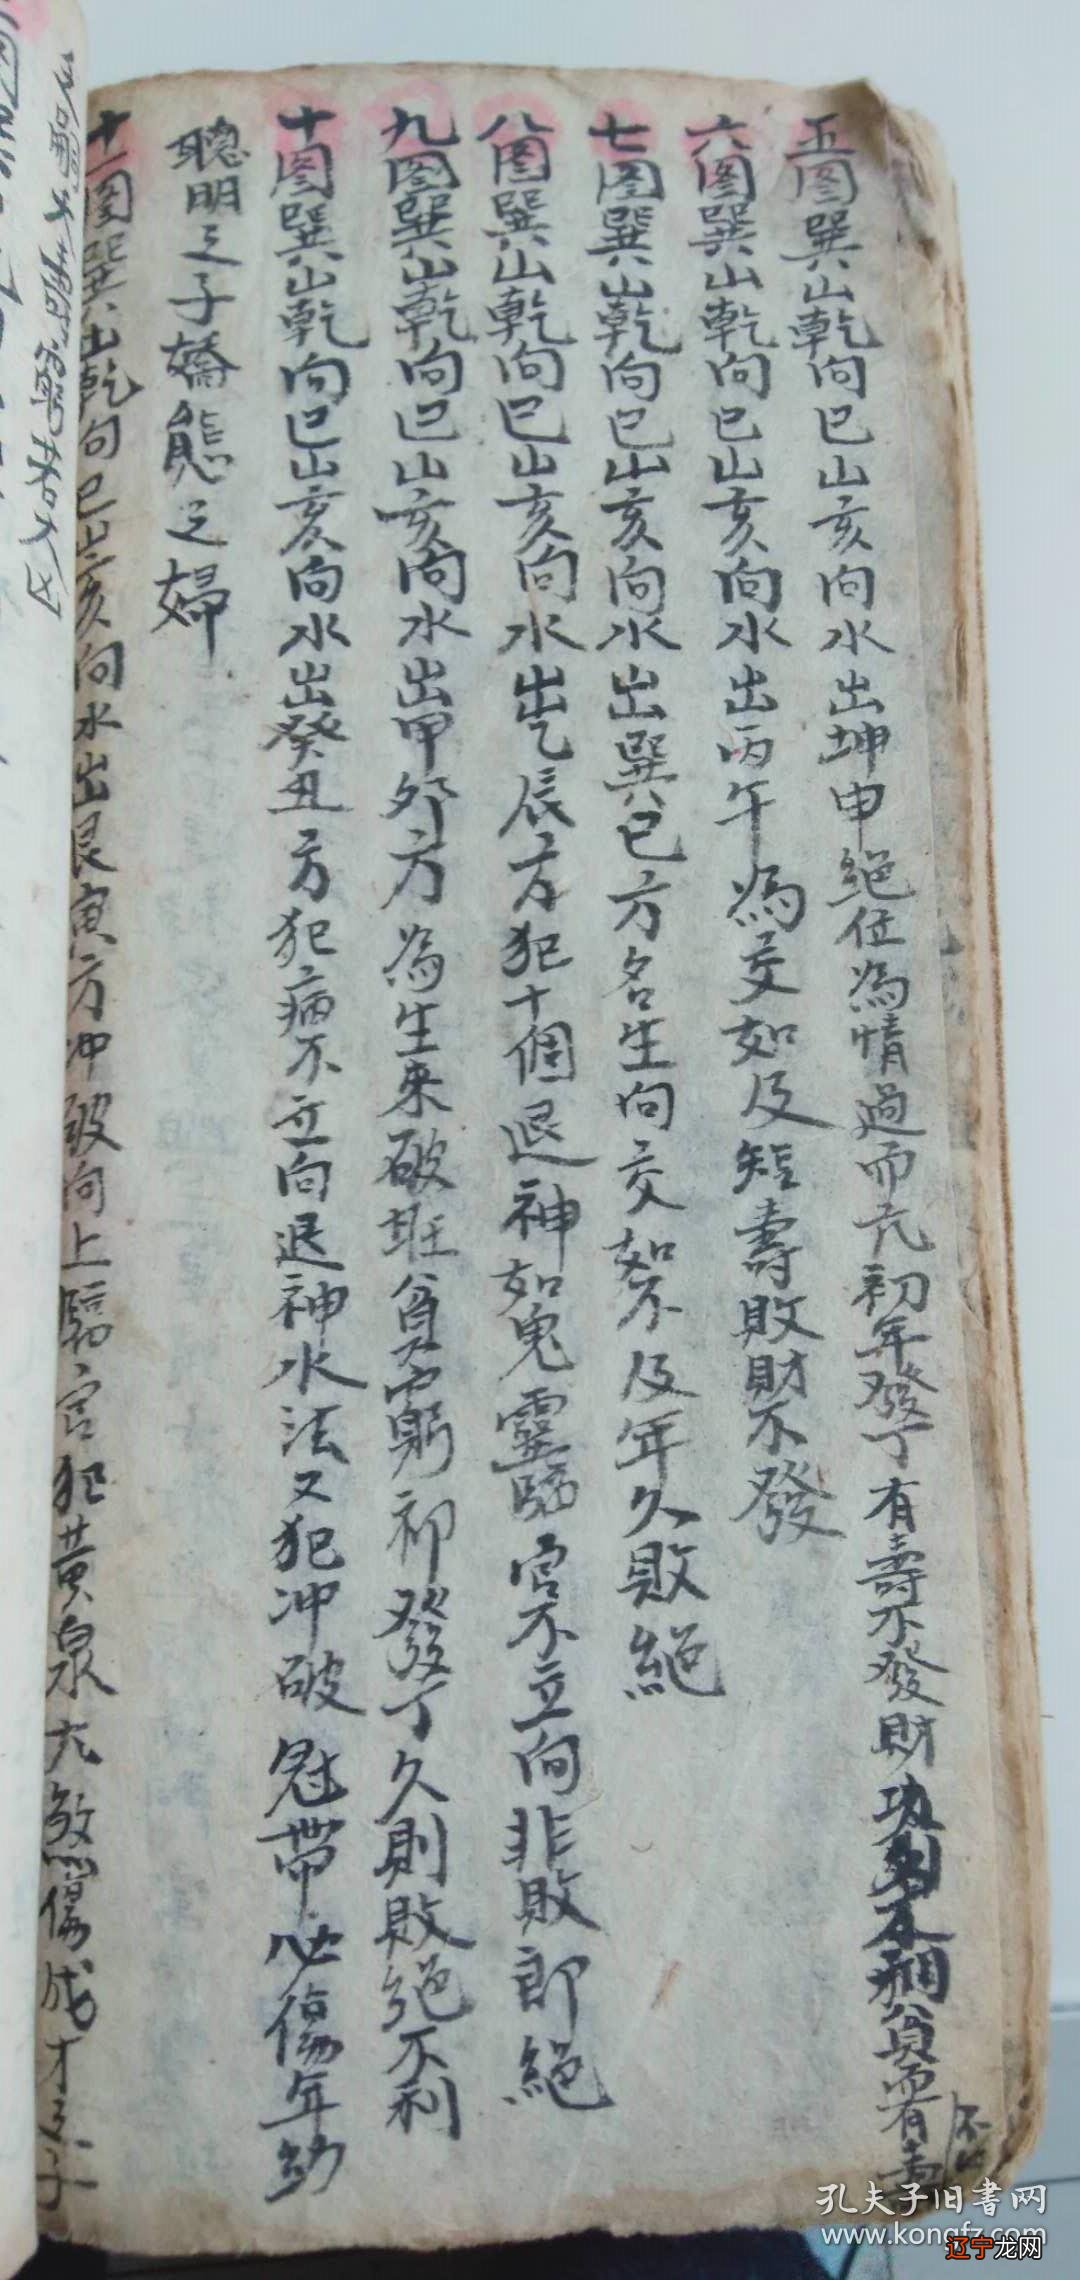 五图巽山乾向巳山亥向水出坤申絕位為情過而亢初年發丁有壽不發財功名不利貧而有壽
六图巽山乾向巳山亥向水出丙午為交如及短壽敗財不發
七图巽山乾向巳山亥向水出巽巳方名生向交如不及年久敗絕
八图巽山乾向巳山亥向水出乙辰方犯十個退神如鬼靈臨官不立向非敗郎絕
九图巽山乾向巳山亥向水出甲夘方為生來破旺貧窮初發丁久則敗絕不利
十图巽山乾向巳山亥向水出癸丑方犯病不立向退神水法又犯冲破冠帶必傷年幼
聰明之子嬌態之婦
十一图巽山乾向巳山亥向水出艮寅方冲破向上臨官犯黃泉大煞傷成才之子
壽窮若大凶
孔夫子旧書网
www.kongfz.com
辽宁龙网